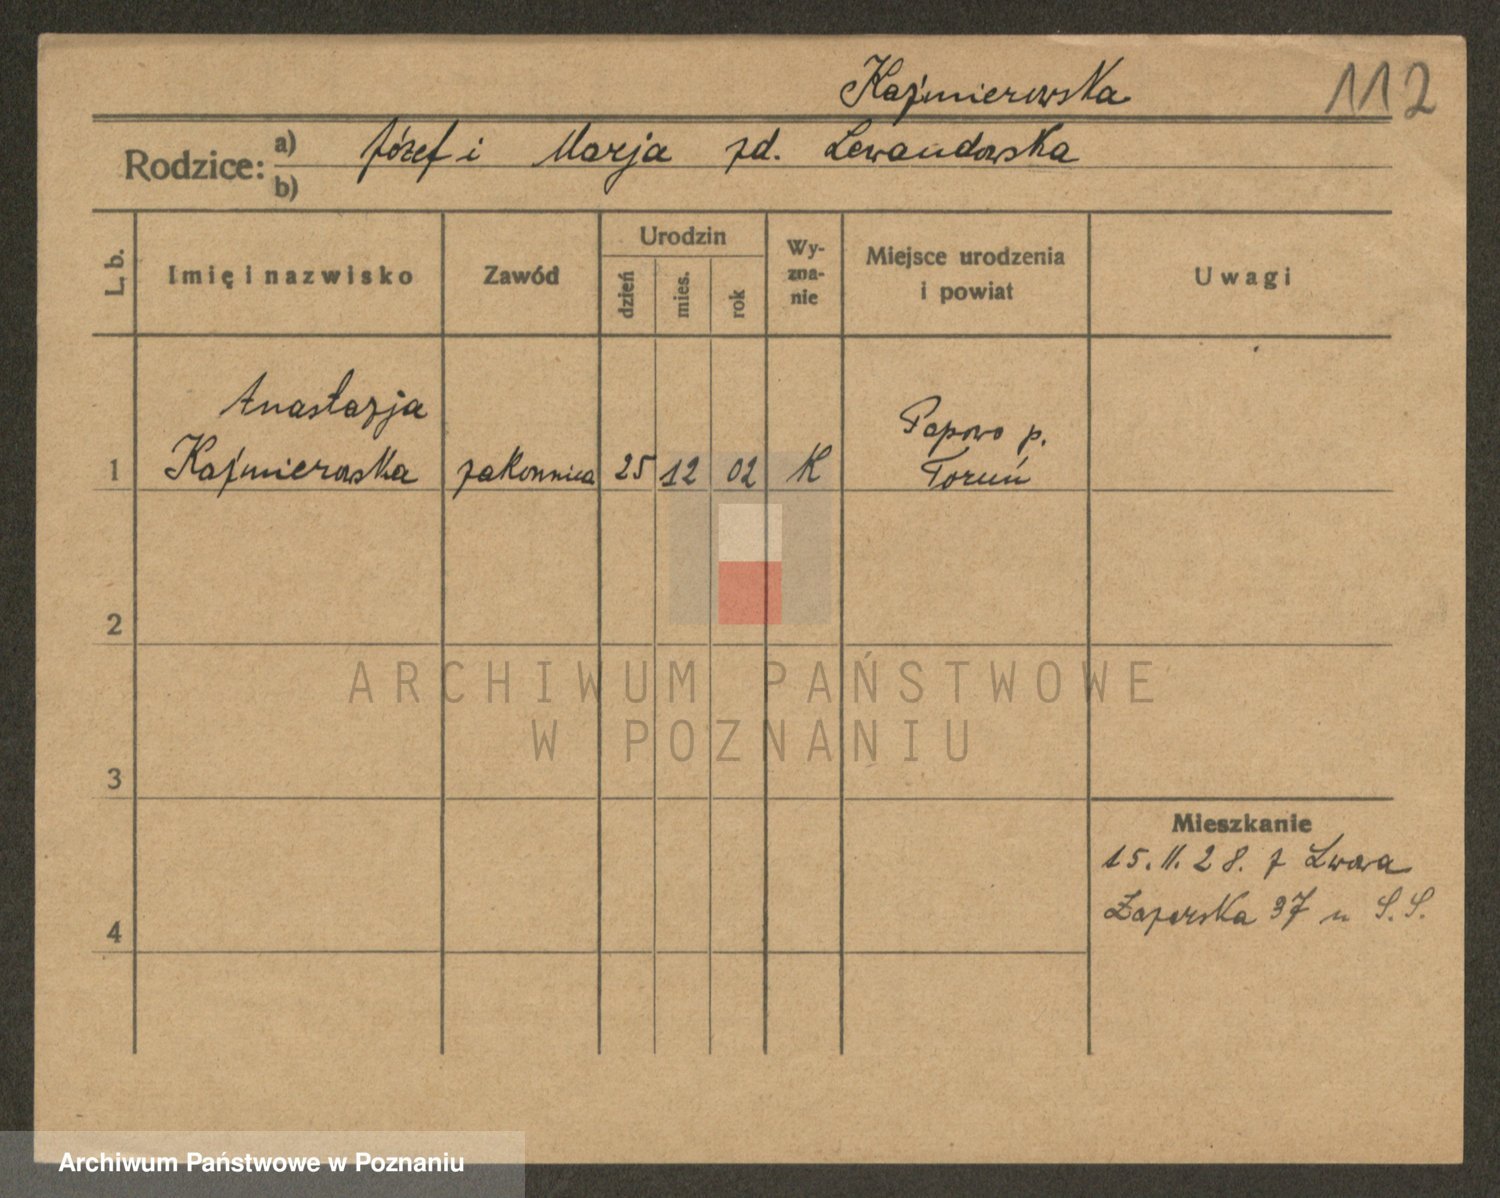 Kaźmierowska
112
Rodzice: a) Józef i Marja zd. Lewandowska
b)
L. b. Imię i nazwisko Zawód Urodzin dzień mies. rok Wy-zna-nie Miejsce urodzenia i powiat Uwagi
Anastazja
1 Kaźmierowska zakonnica 25 12 02 K Papowo p. Toruń
2
ARCHIWUM PAŃSTWOWE
W POZNANIU
3
Mieszkanie
15. 11. 28. z Lwowa
37 u S.S.
4
Archiwum Państwowe w Poznaniu